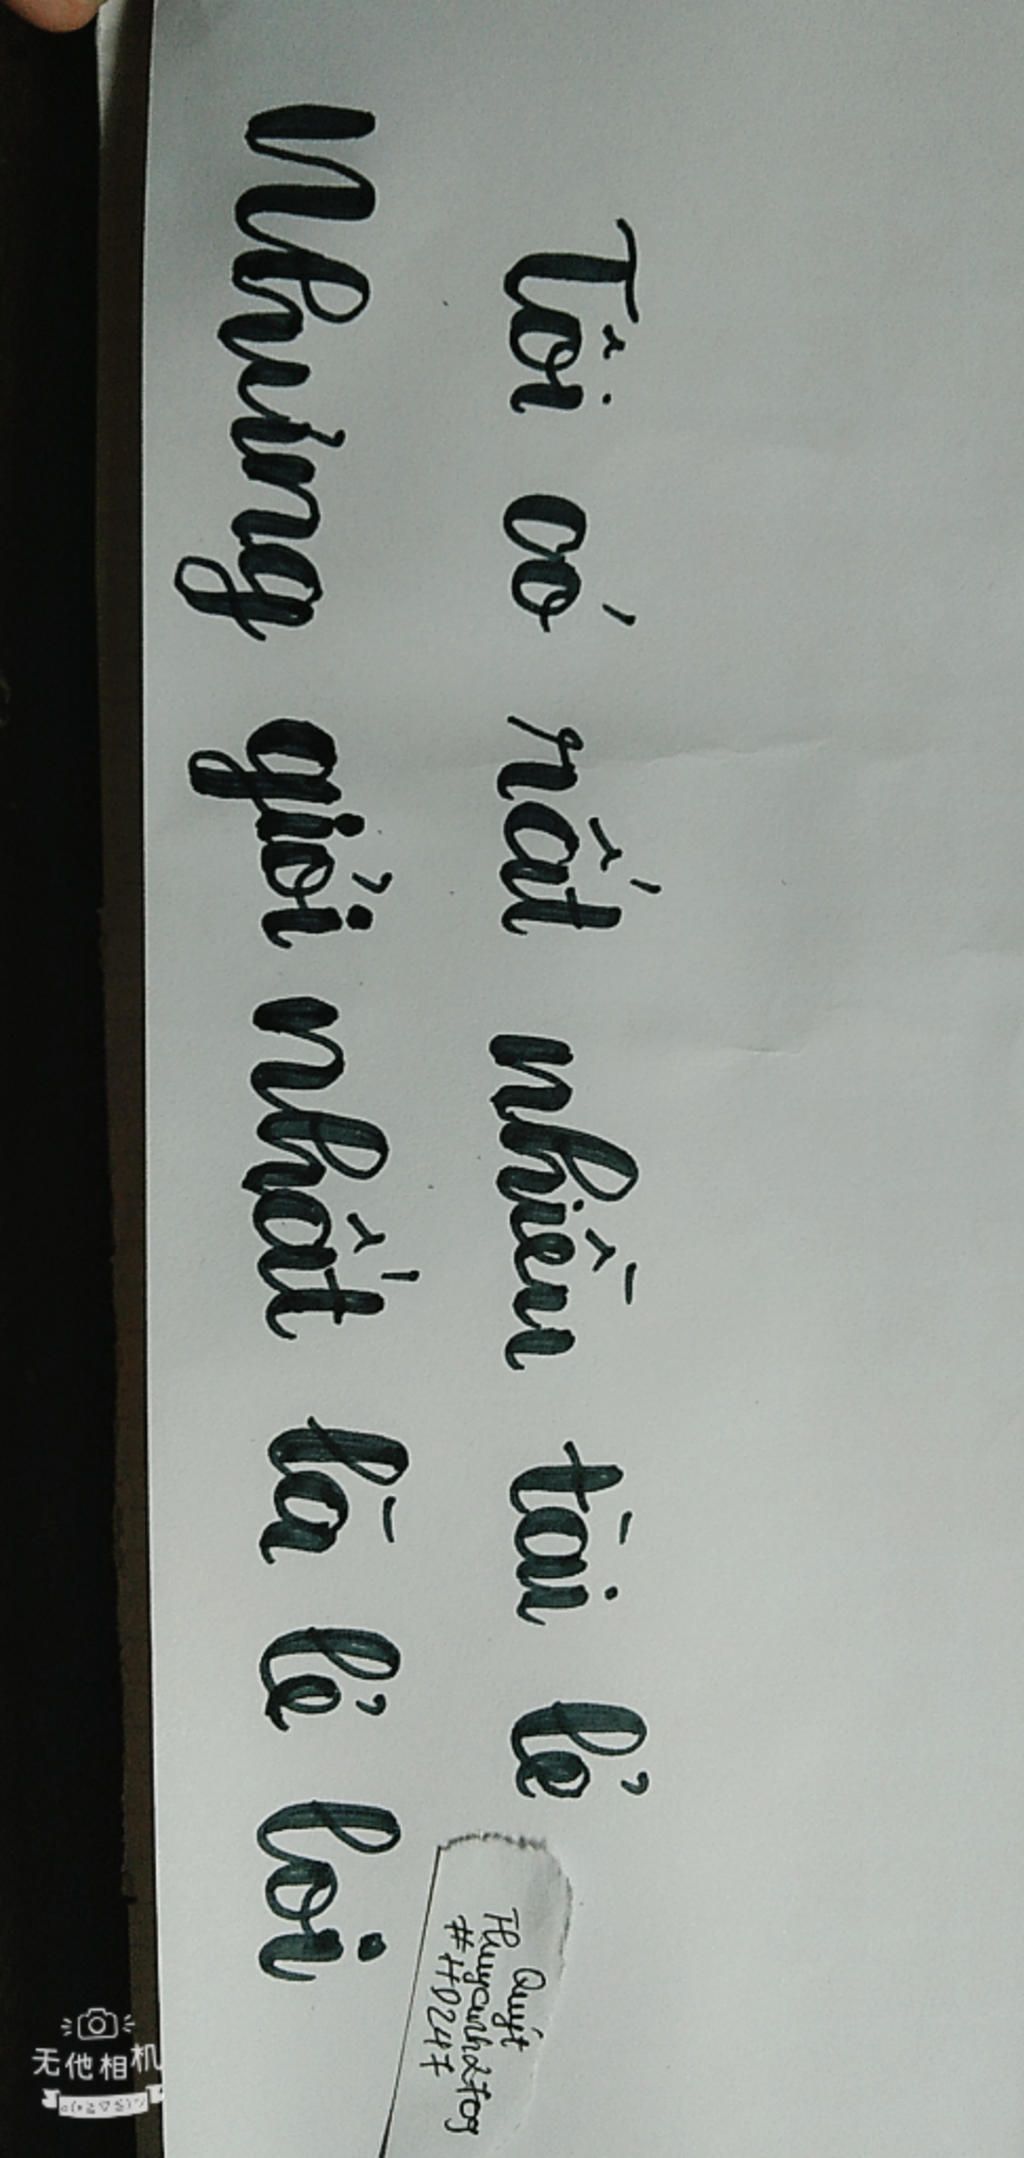 Tôi có rất nhiều tài lẻ
Nhưng giỏi nhất là lẻ loi
Quýt
#HD247
无他相机